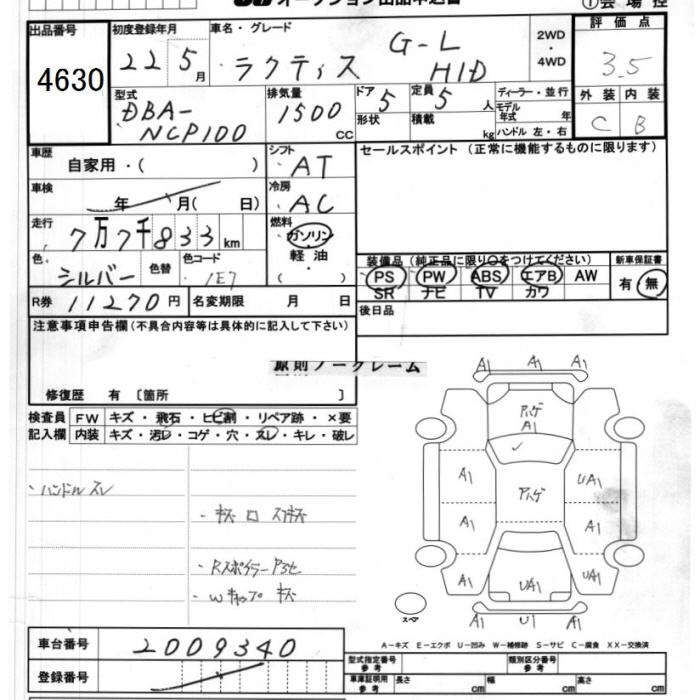 オークション出品申込書
①会場控
出品番号
4630
初度登録年月
22 5月
車名・グレード
ラクティス G-L HID
2WD
・
4WD
評価点
3.5
外装 内装
C B
型式
DBA-
NCP100
排気量
1500 CC
ドア 5
形状
定員 5 人
積載 kg
ディーラー・並行
モデル年式 年
ハンドル 左・右
車歴
自家用・( )
シフト
AT
セールスポイント (正常に機能するものに限ります)
車検
年 月( 日)
冷房
AC
走行
7万7千833km
燃料
ガソリン
軽油
・
( )
色
シルバー
色替
色コード
1E7
装備品 (純正品に限り○をつけてください)
PS PW ABS エアB AW
SR ナビ TV カワ
新車保証書
有・無
R券 11270円 名変期限 月 日
後日品
注意事項申告欄 (不具合内容等は具体的に記入して下さい)
原則ノークレーム
修復歴 有 〔箇所 〕
検査員 FW キズ・飛石・ヒビ割・リペア跡・×要
記入欄 内装 キズ・汚レ・コゲ・穴・スレ・キレ・破レ
・ハンドルスレ
・Rスポイラー
・Wキャップ キズ
A1 A1 A1
A1
A1 UA1
アハゲ
A1 A1
A1 UA1 UA1
A1 U1 A1
スペア
A-キズ E-エクボ U-凹み W-補修跡 S-サビ C-腐食 XX-交換済
車台番号 2009340
登録番号
型式指定番号
参考
類別区分番号
参考
車庫証明用
参考
長さ cm 幅 cm 高さ cm